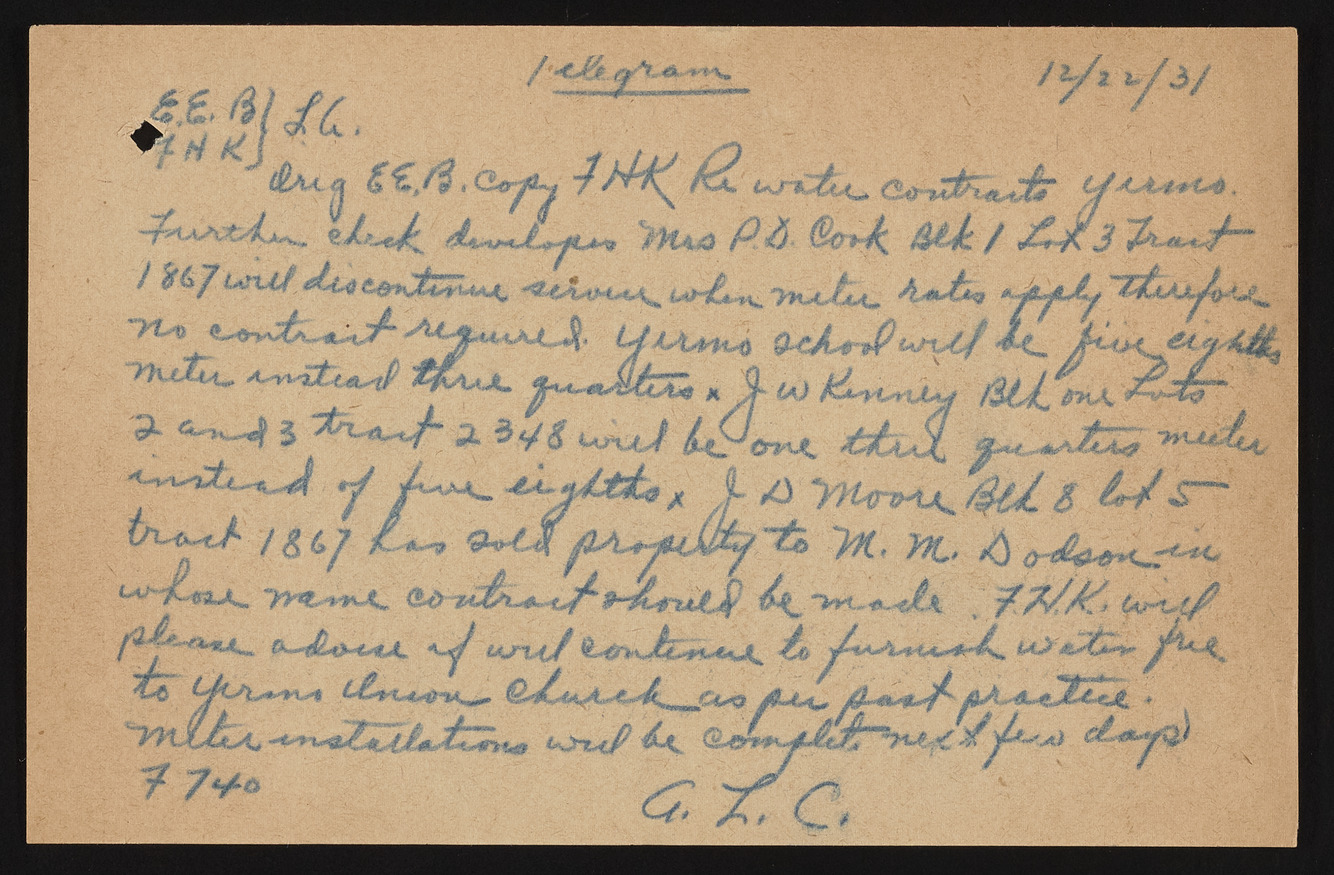 Telegram 12/22/31
E.E. B } L.A.
F H K }
Orig E.E.B. copy F H K Re water contracts Yermo.
Further check developes Mrs P.D. Cook Blk 1 Lot 3 Tract
1867 will discontinue service when meter rates apply therefore
no contract required. Yermo school will be five eighths
meter instead three quarters x J W Kenney Blk one Lots
2 and 3 tract 2348 will be one three quarters meeter
instead of five eighths x J D Moore Blk 8 lot 5
tract 1867 has sold property to M. M. Dodson in
whose name contract should be made. F.H.K. will
please advise if will continue to furnish water free
to Yermo Union Church as per past practice.
Meter installations will be complete next few days
F 740
A. L. C.